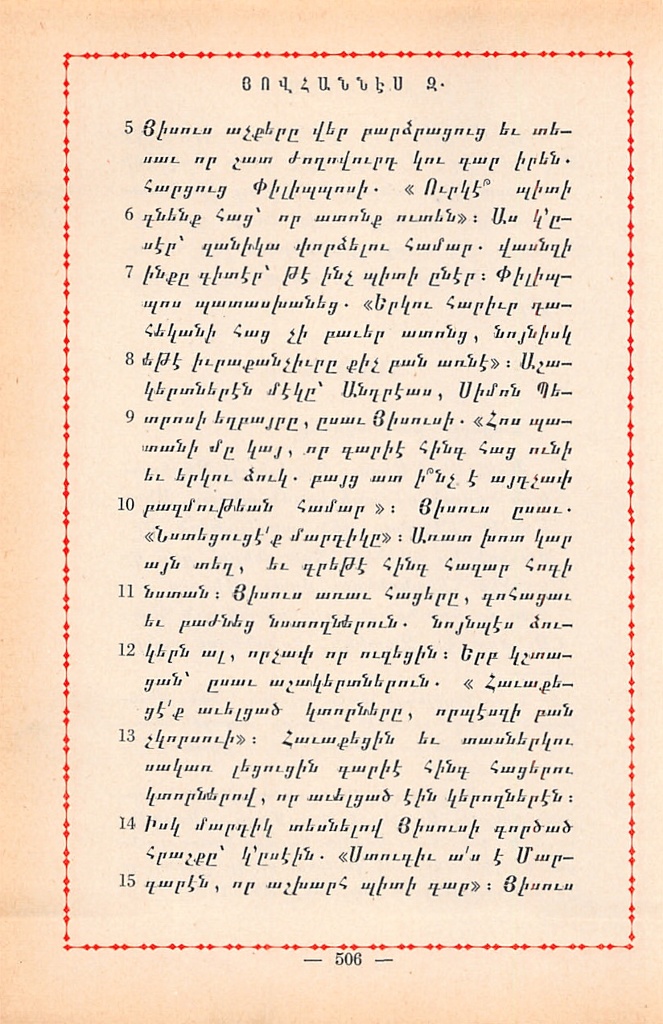 ՅՈՎՀԱՆՆԷՍ Զ.
5 Յիսուս աչքերը վեր բարձրացուց եւ տե–
սաւ որ շատ ժողովուրդ կու գար իրեն.
հարցուց Փիլիպպոսի. « Ուրկէ՞ պիտի
6 գնենք հաց՝ որ ատոնք ուտեն»։ Աս կ՚ը–
սէր՝ զանիկա փորձելու համար. վասնզի
7 ինքը գիտէր՝ թէ ինչ պիտի ընէր։ Փիլիպ–
պոս պատասխանեց. «Երկու հարիւր դա–
հեկանի հաց չի բաւեր ատոնց, նոյնիսկ
8 եթէ իւրաքանչիւրը քիչ բան առնէ»։ Աշա–
կերտներէն մէկը՝ Անդրէաս, Սիմոն Պե–
9 տրոսի եղբայրը, ըսաւ Յիսուսի. «Հոս պա–
տանի մը կայ, որ գարիէ հինգ հաց ունի
եւ երկու ձուկ. բայց ատ ի՞նչ է այդչափ
10 բազմութեան համար »։ Յիսուս ըսաւ.
«Նստեցուցէ՛ք մարդիկը»։ Առատ խոտ կար
այն տեղ, եւ գրեթէ հինգ հազար հոգի
11 նստան։ Յիսուս առաւ հացերը, գոհացաւ
եւ բաժնեց նստողներուն. նոյնպէս ձու–
12 կերն ալ, որչափ որ ուզեցին։ Երբ կշտա–
ցան՝ ըսաւ աշակերտներուն. « Հաւաքե–
ցէ՛ք աւելցած կտորները, որպէսզի բան
13 չկորսուի»։ Հաւաքեցին եւ տասներկու
սակառ լեցուցին գարիէ հինգ հացերու
կտորներով, որ աւելցած էին կերողներէն։
14 Իսկ մարդիկ տեսնելով Յիսուսի գործած
հրաշքը՝ կ՚ըսէին. «Ստուգիւ ա՛ս է Մար–
15 գարէն, որ աշխարհ պիտի գար»։ Յիսուս
— 506 —